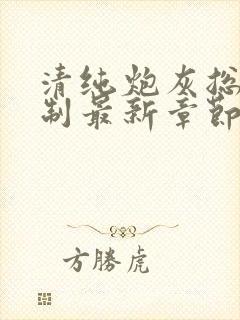 清纯炮灰总
制最新章節
方勝虎